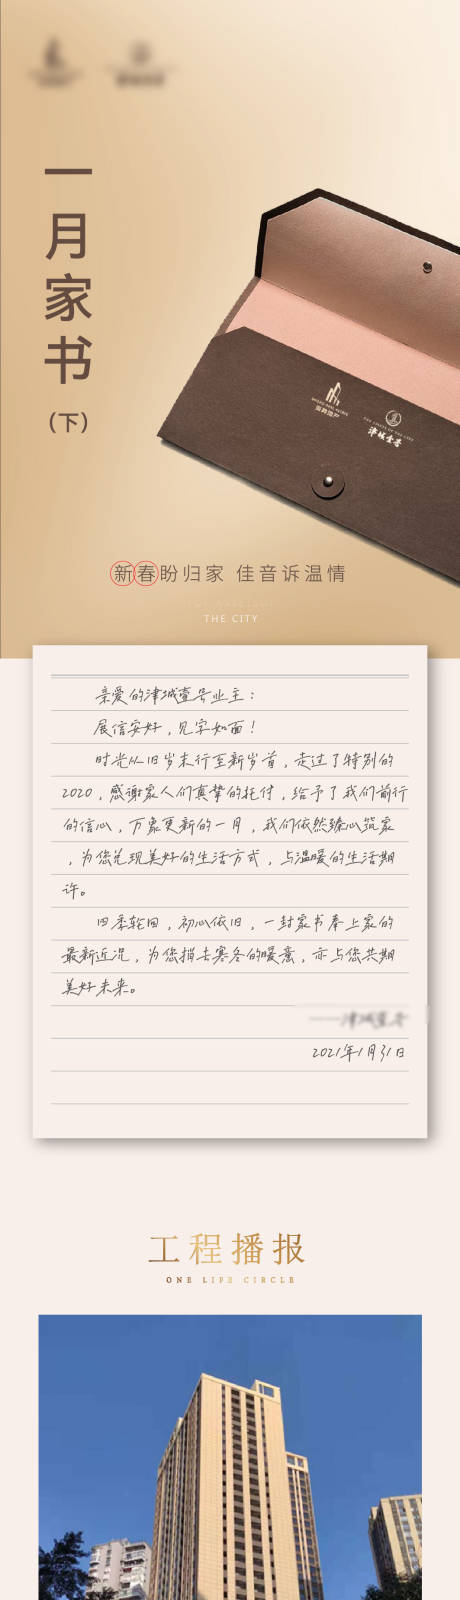 一月家书
（下）
津城壹号
新春盼归家 佳音诉温情
THE CITY
亲爱的津城壹号业主：
展信安好，见字如面！
时光从旧岁末行至新岁首，走过了特别的
2020，感谢家人们真挚的托付，给予了我们前行
的信心，万象更新的一月，我们依然臻心筑家
，为您兑现美好的生活方式，与温暖的生活期
许。
四季轮回，初心依旧，一封家书奉上家的
最新近况，为您捎去寒冬的暖意，亦与您共期
美好未来。
——津城壹号
2021年1月31日
工程播报
ONE LIFE CIRCLE